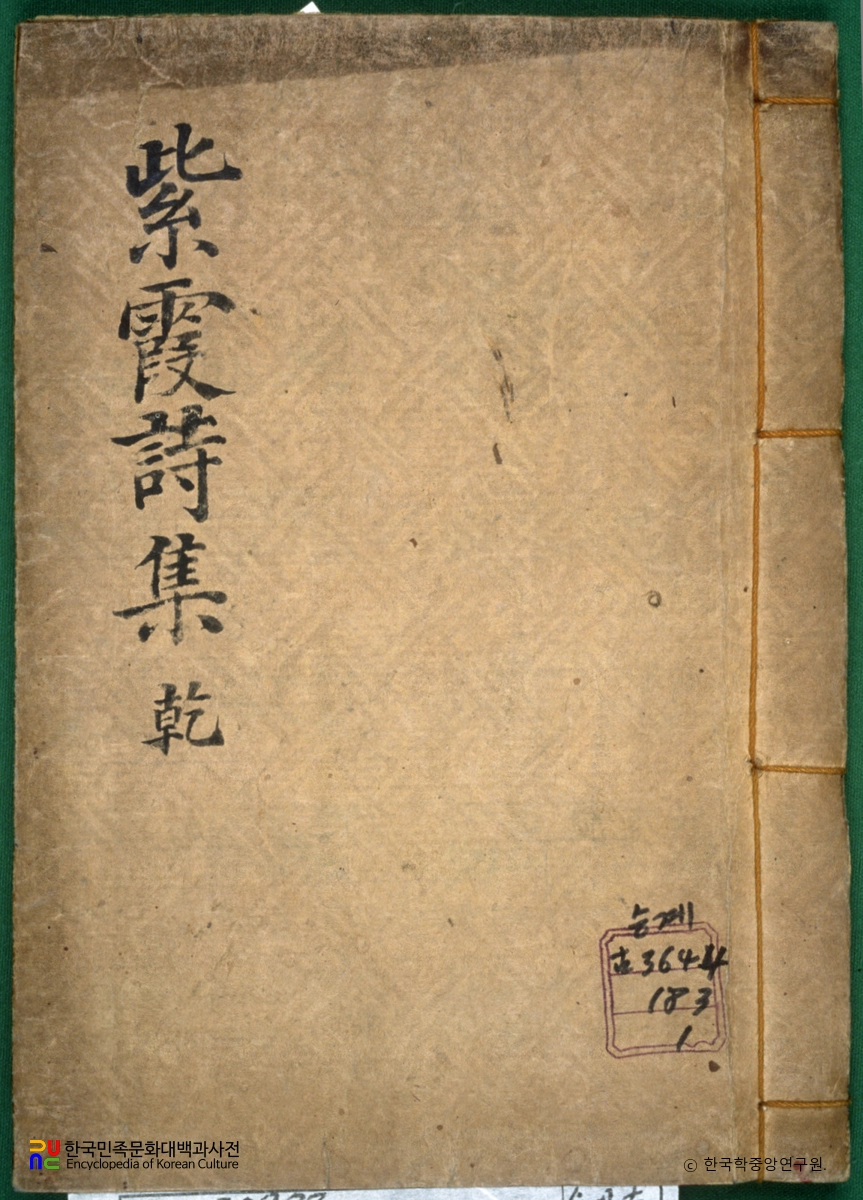 紫霞詩集 乾
승계
古3644
183
1
한국민족문화대백과사전
Encyclopedia of Korean Culture
© 한국학중앙연구원.